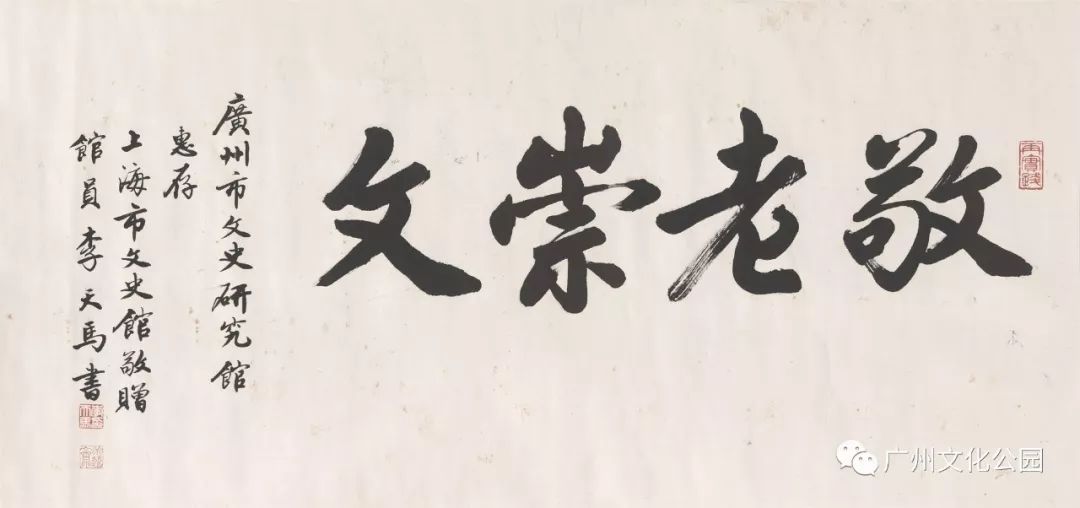 敬老崇文
廣州市文史研究館
惠存
上海市文史館敬贈
館員李天馬書
再實踐
广州文化公园